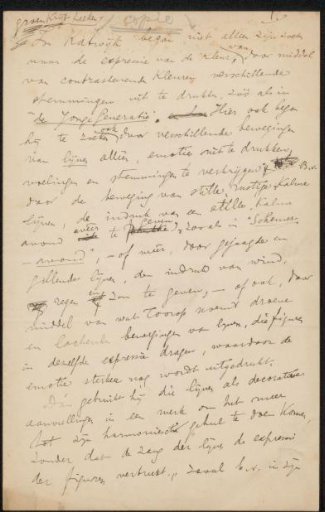 copie
In Katwijk begon niet alleen zijn zoeken
naar de expressie van de kleur, van door middel
van contrasteerende kleuren verschillende
stemmingen uit te drukken, zoo als in
"de Jonge Generatie". Hier ook begon
hij te zoeken ook door verschillende bewegingen
van lijnen alleen, emoties uit te drukken,
voelingen en stemmingen te verkrijgen, B.v.
door de beweging van stille, rustige, kalme
lijnen, de indruk van een stille kalme
avond weer te geven, zooals in "Schemer-
avond", – of meer, door gejaagde en
golvende lijnen, den indruk van wind,
regen en zon te geven, – of ook, door
middel van wat Toorop noemt droeve
en lachende bewegingen van lijnen, die figuren
in dezelfde expressie dragen, waardoor de
emotie sterker nog wordt uitgedrukt.
Dán gebruikt hij die lijnen als decoratieve
aanvullingen in een werk om het meer
tot zijn harmonische geheel te doen komen,
zonder dat de zang der lijnen de expressie
der figuren verstoort, zooals b.v. in zijn